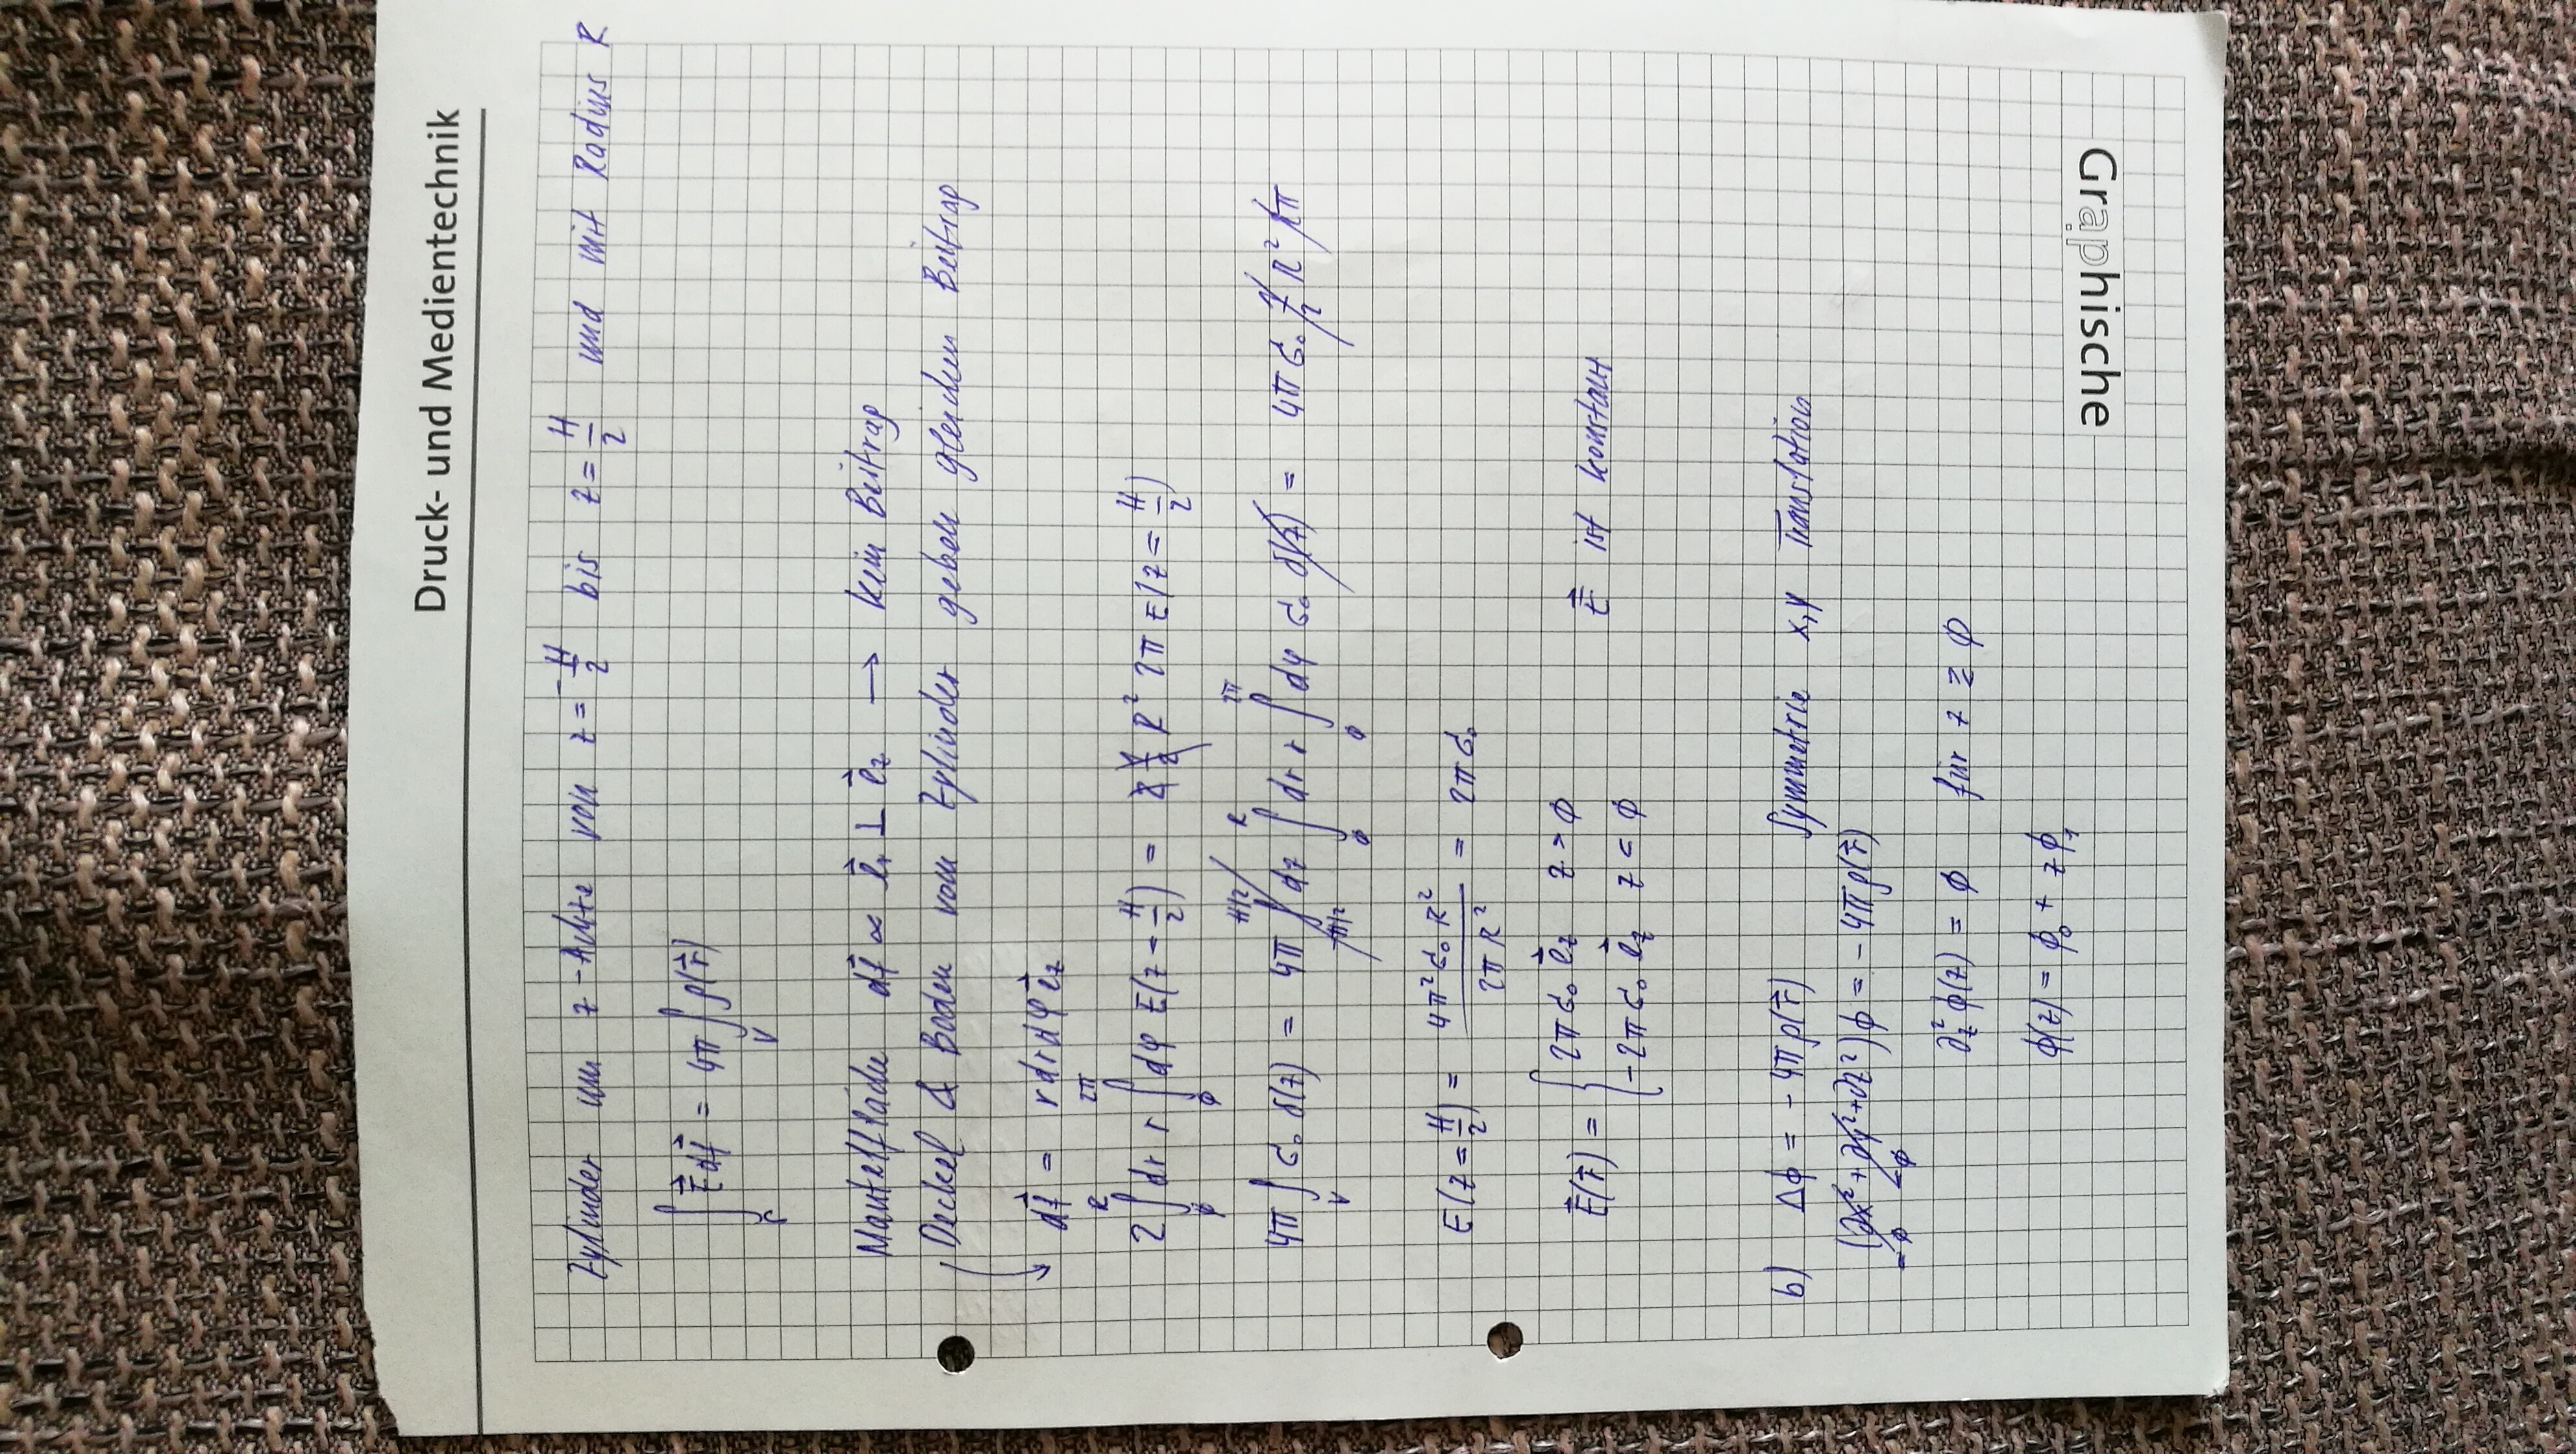 Druck- und Medientechnik
Zylinder um z-Achse von z = -H/2 bis z = H/2 und mit Radius R
∫_F E⃗ df⃗ = 4π ∫_V ρ(r⃗)
Mantelfläche df⃗ ∝ e⃗_r ⊥ e⃗_z → kein Beitrag
Deckel & Boden vom Zylinder geben gleichen Beitrag
df⃗ = r dr dφ e⃗_z
2 ∫_0^R dr r ∫_0^2π dφ E(z = H/2) = 2 1/2 R² 2π E(z = H/2)
4π ∫_V σ₀ δ(z) = 4π ∫_-H/2^H/2 dz ∫_0^R dr r ∫_0^2π dφ σ₀ δ(z) = 4π σ₀ 1/2 R² 2π
E(z = H/2) = 4π² σ₀ R² / 2π R² = 2π σ₀
E⃗(r⃗) = { 2π σ₀ e⃗_z z > 0
-2π σ₀ e⃗_z z < 0
E⃗ ist konstant
b) Δϕ = -4π ρ(r⃗) Symmetrie x,y Translation
(∂x² + ∂y² + ∂z²) ϕ = -4π ρ(r⃗)
=0 =0
∂_z² ϕ(z) = 0 für z ≷ 0
ϕ(z) = ϕ₀ + z ϕ₁
Graphische